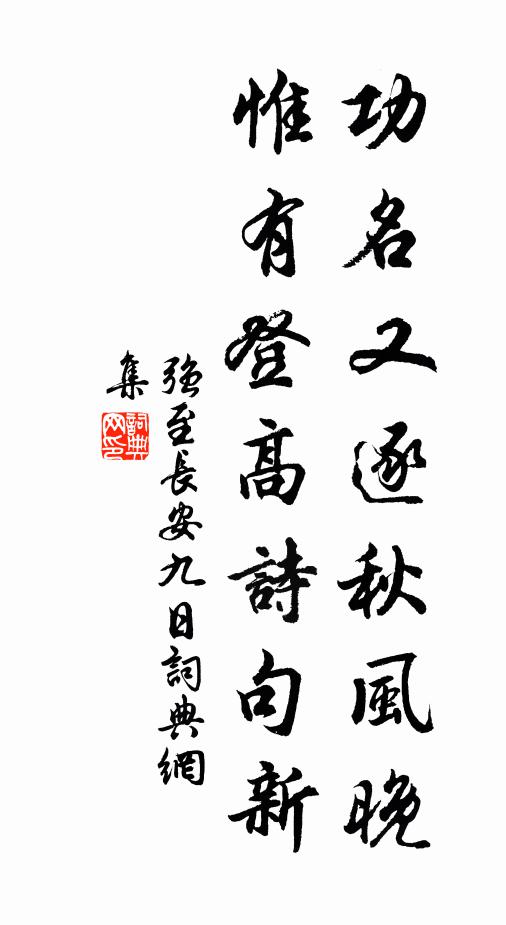 功名又逐秋風晚
惟有登高詩句新
強至長安九日詞典網
集
詞典
网印